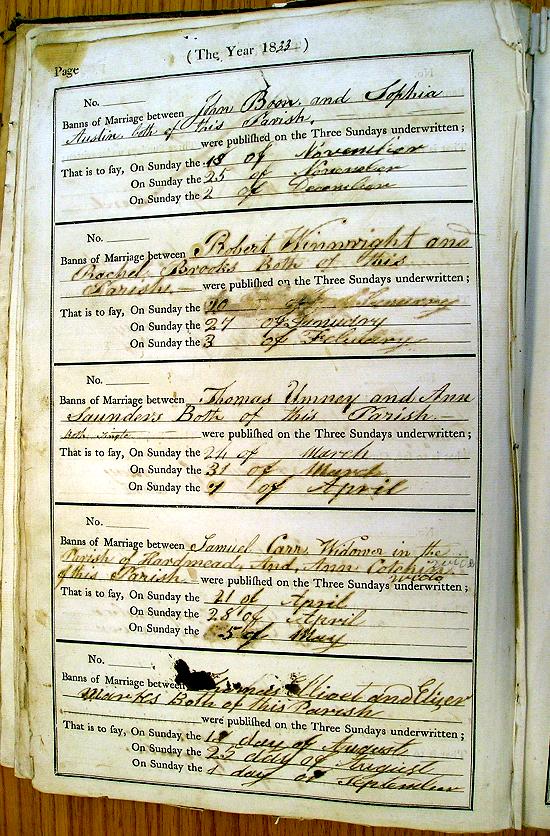 (The Year 1833)
Page
No.
Banns of Marriage between John Boon and Sophia
Austin both of this Parish.
were published on the Three Sundays underwritten;
That is to say, On Sunday the 18 of November
On Sunday the 25 of November
On Sunday the 2 of December
No.
Banns of Marriage between Robert Winnwright and
Rachel Brooks Both of this
Parish were published on the Three Sundays underwritten;
That is to say, On Sunday the 20 of January
On Sunday the 27 of January
On Sunday the 3 of February
No.
Banns of Marriage between Thomas Umney and Ann
Saunders Both of this Parish
both single were published on the Three Sundays underwritten;
That is to say, On Sunday the 24 of March
On Sunday the 31 of March
On Sunday the 7 of April
No.
Banns of Marriage between Samuel Carr Widower in the
Parish of Hardmead And Ann
of this Parish were published on the Three Sundays underwritten;
That is to say, On Sunday the 21 of April
On Sunday the 28 of April
On Sunday the 5 of May
No.
Banns of Marriage between Thomas Elliott and Elizer
Marks Both of this Parish
were published on the Three Sundays underwritten;
That is to say, On Sunday, the 18 day of August
On Sunday the 25 day of August
On Sunday the 1 day of September